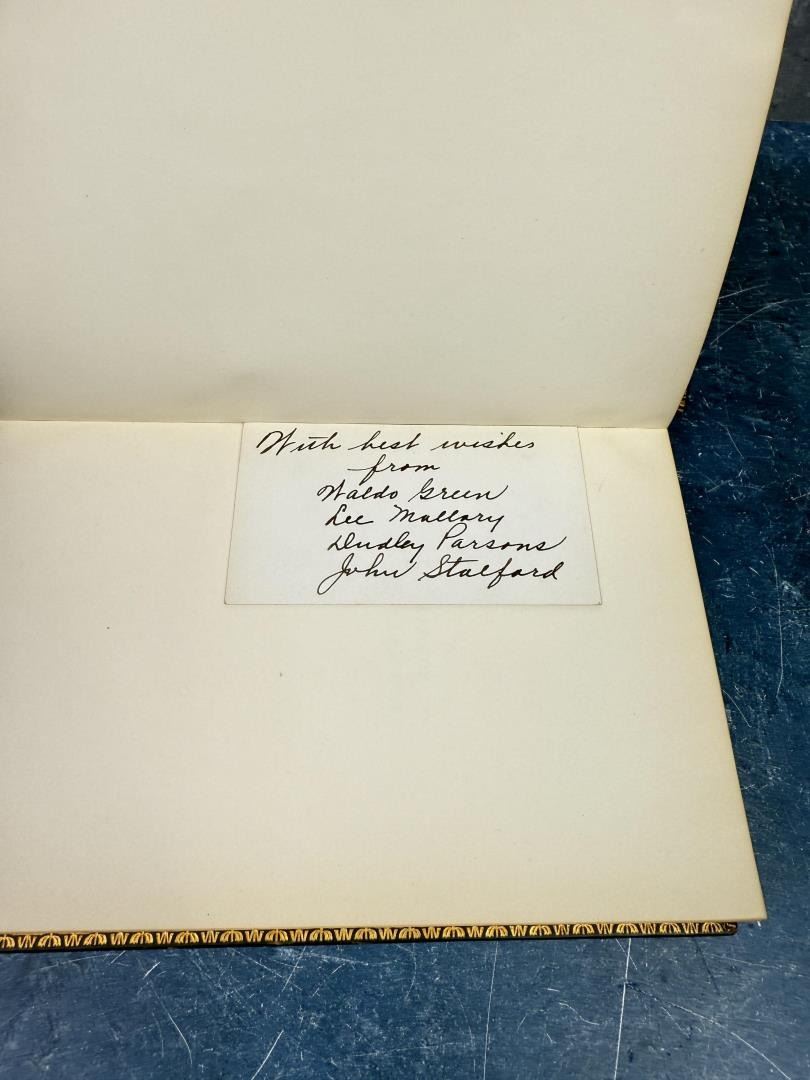 With best wishes
from
Waldo Green
Lee Mallary
Dudley Parsons
John Stalford